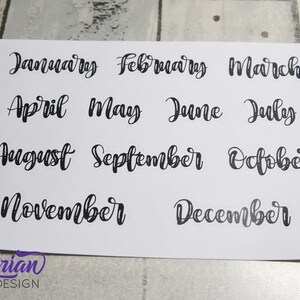 January February March
April May June July
August September Octobe
November December
rian
DESIGN